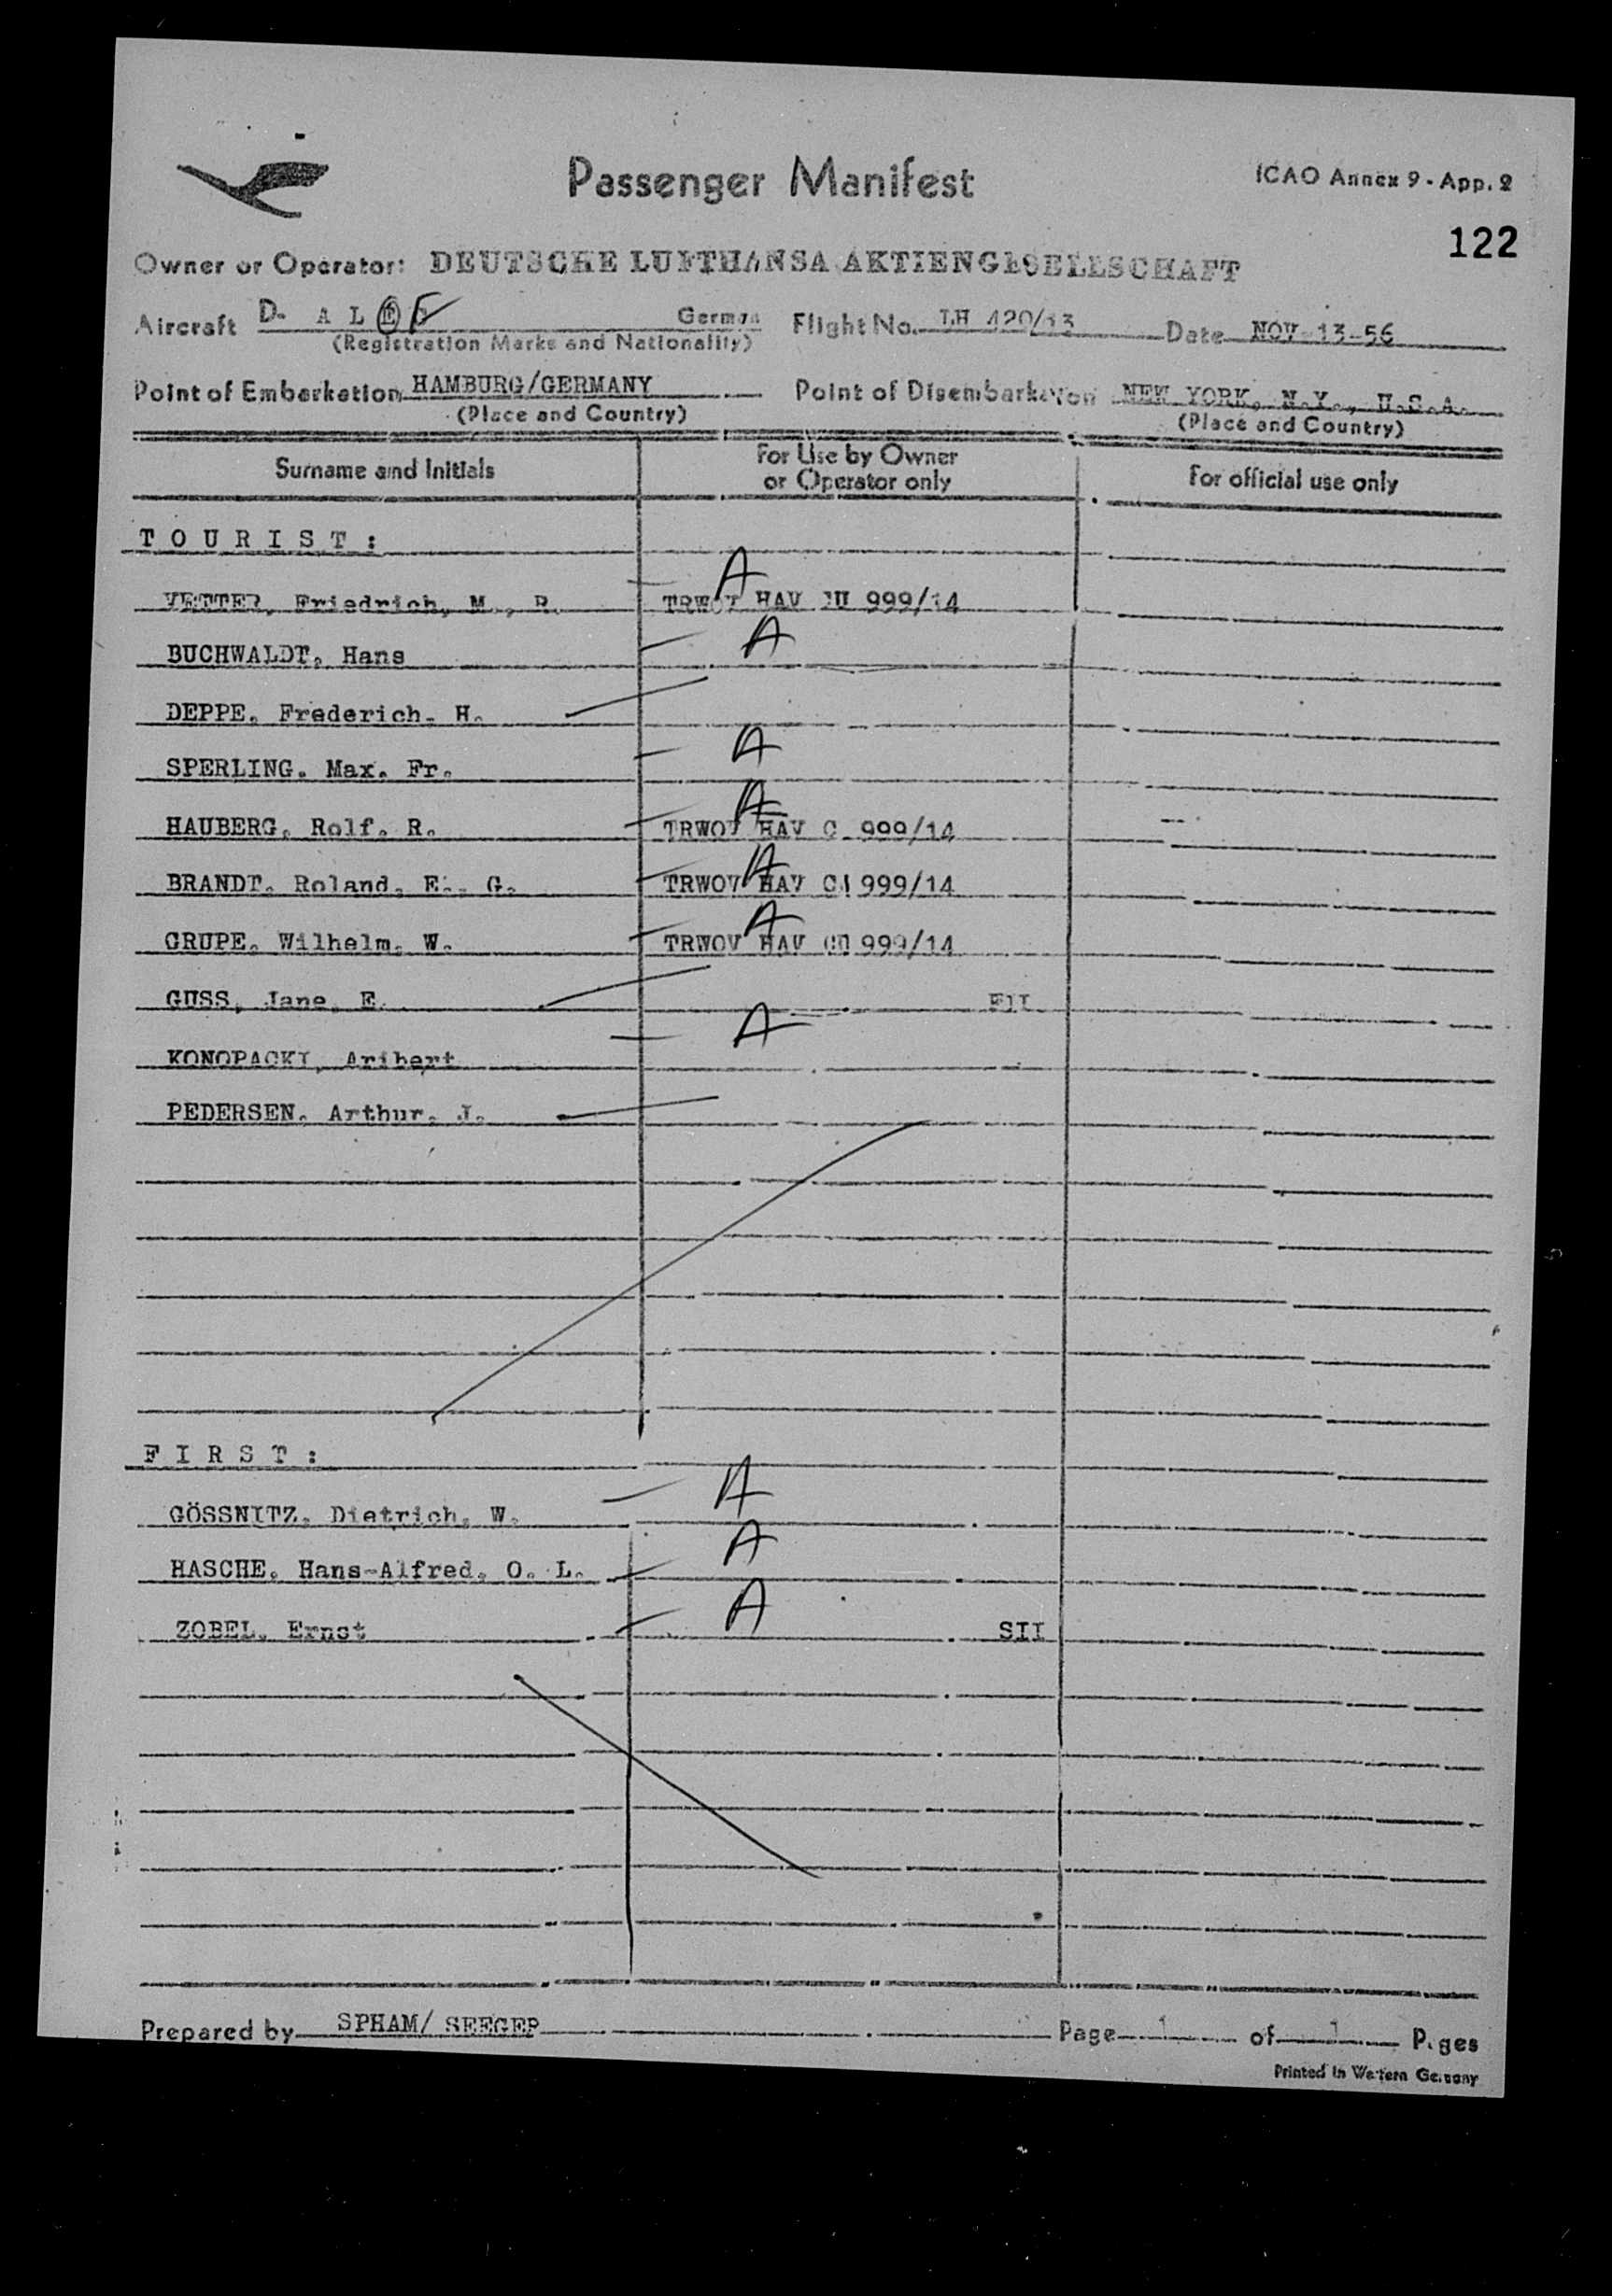 Passenger Manifest
ICAO Annex 9 - App. 2
122
Owner or Operator: DEUTSCHE LUFTHANSA AKTIENGESELLSCHAFT
Aircraft D- A L E F German Flight No. LH 420/13 Date NOV-13-56
(Registration Marks and Nationality)
Point of Embarkation HAMBURG/GERMANY Point of Disembarkation NEW YORK, N.Y., U.S.A.
(Place and Country) (Place and Country)
Surname and Initials For Use by Owner or Operator only For official use only
T O U R I S T :
VETTER, Friedrich, M., R. A TRWOV HAV 999/14
BUCHWALDT, Hans A
DEPPE, Frederich, H.
SPERLING, Max, Fr. A
HAUBERG, Rolf, R. A TRWOV HAV 999/14
BRANDT, Roland, E., G. A TRWOV HAV 999/14
GRUPE, Wilhelm, W. A TRWOV HAV 999/14
GUSS, Jane, E.
KONOPACKI, Aribert A
PEDERSEN, Arthur, J.
F I R S T :
GÖSSNITZ, Dietrich, W. A
HASCHE, Hans-Alfred, O. L. A
ZOBEL, Ernst A SII
Prepared by SPHAM/ SEEGER Page 1 of 1 Pages
Printed in Western Germany